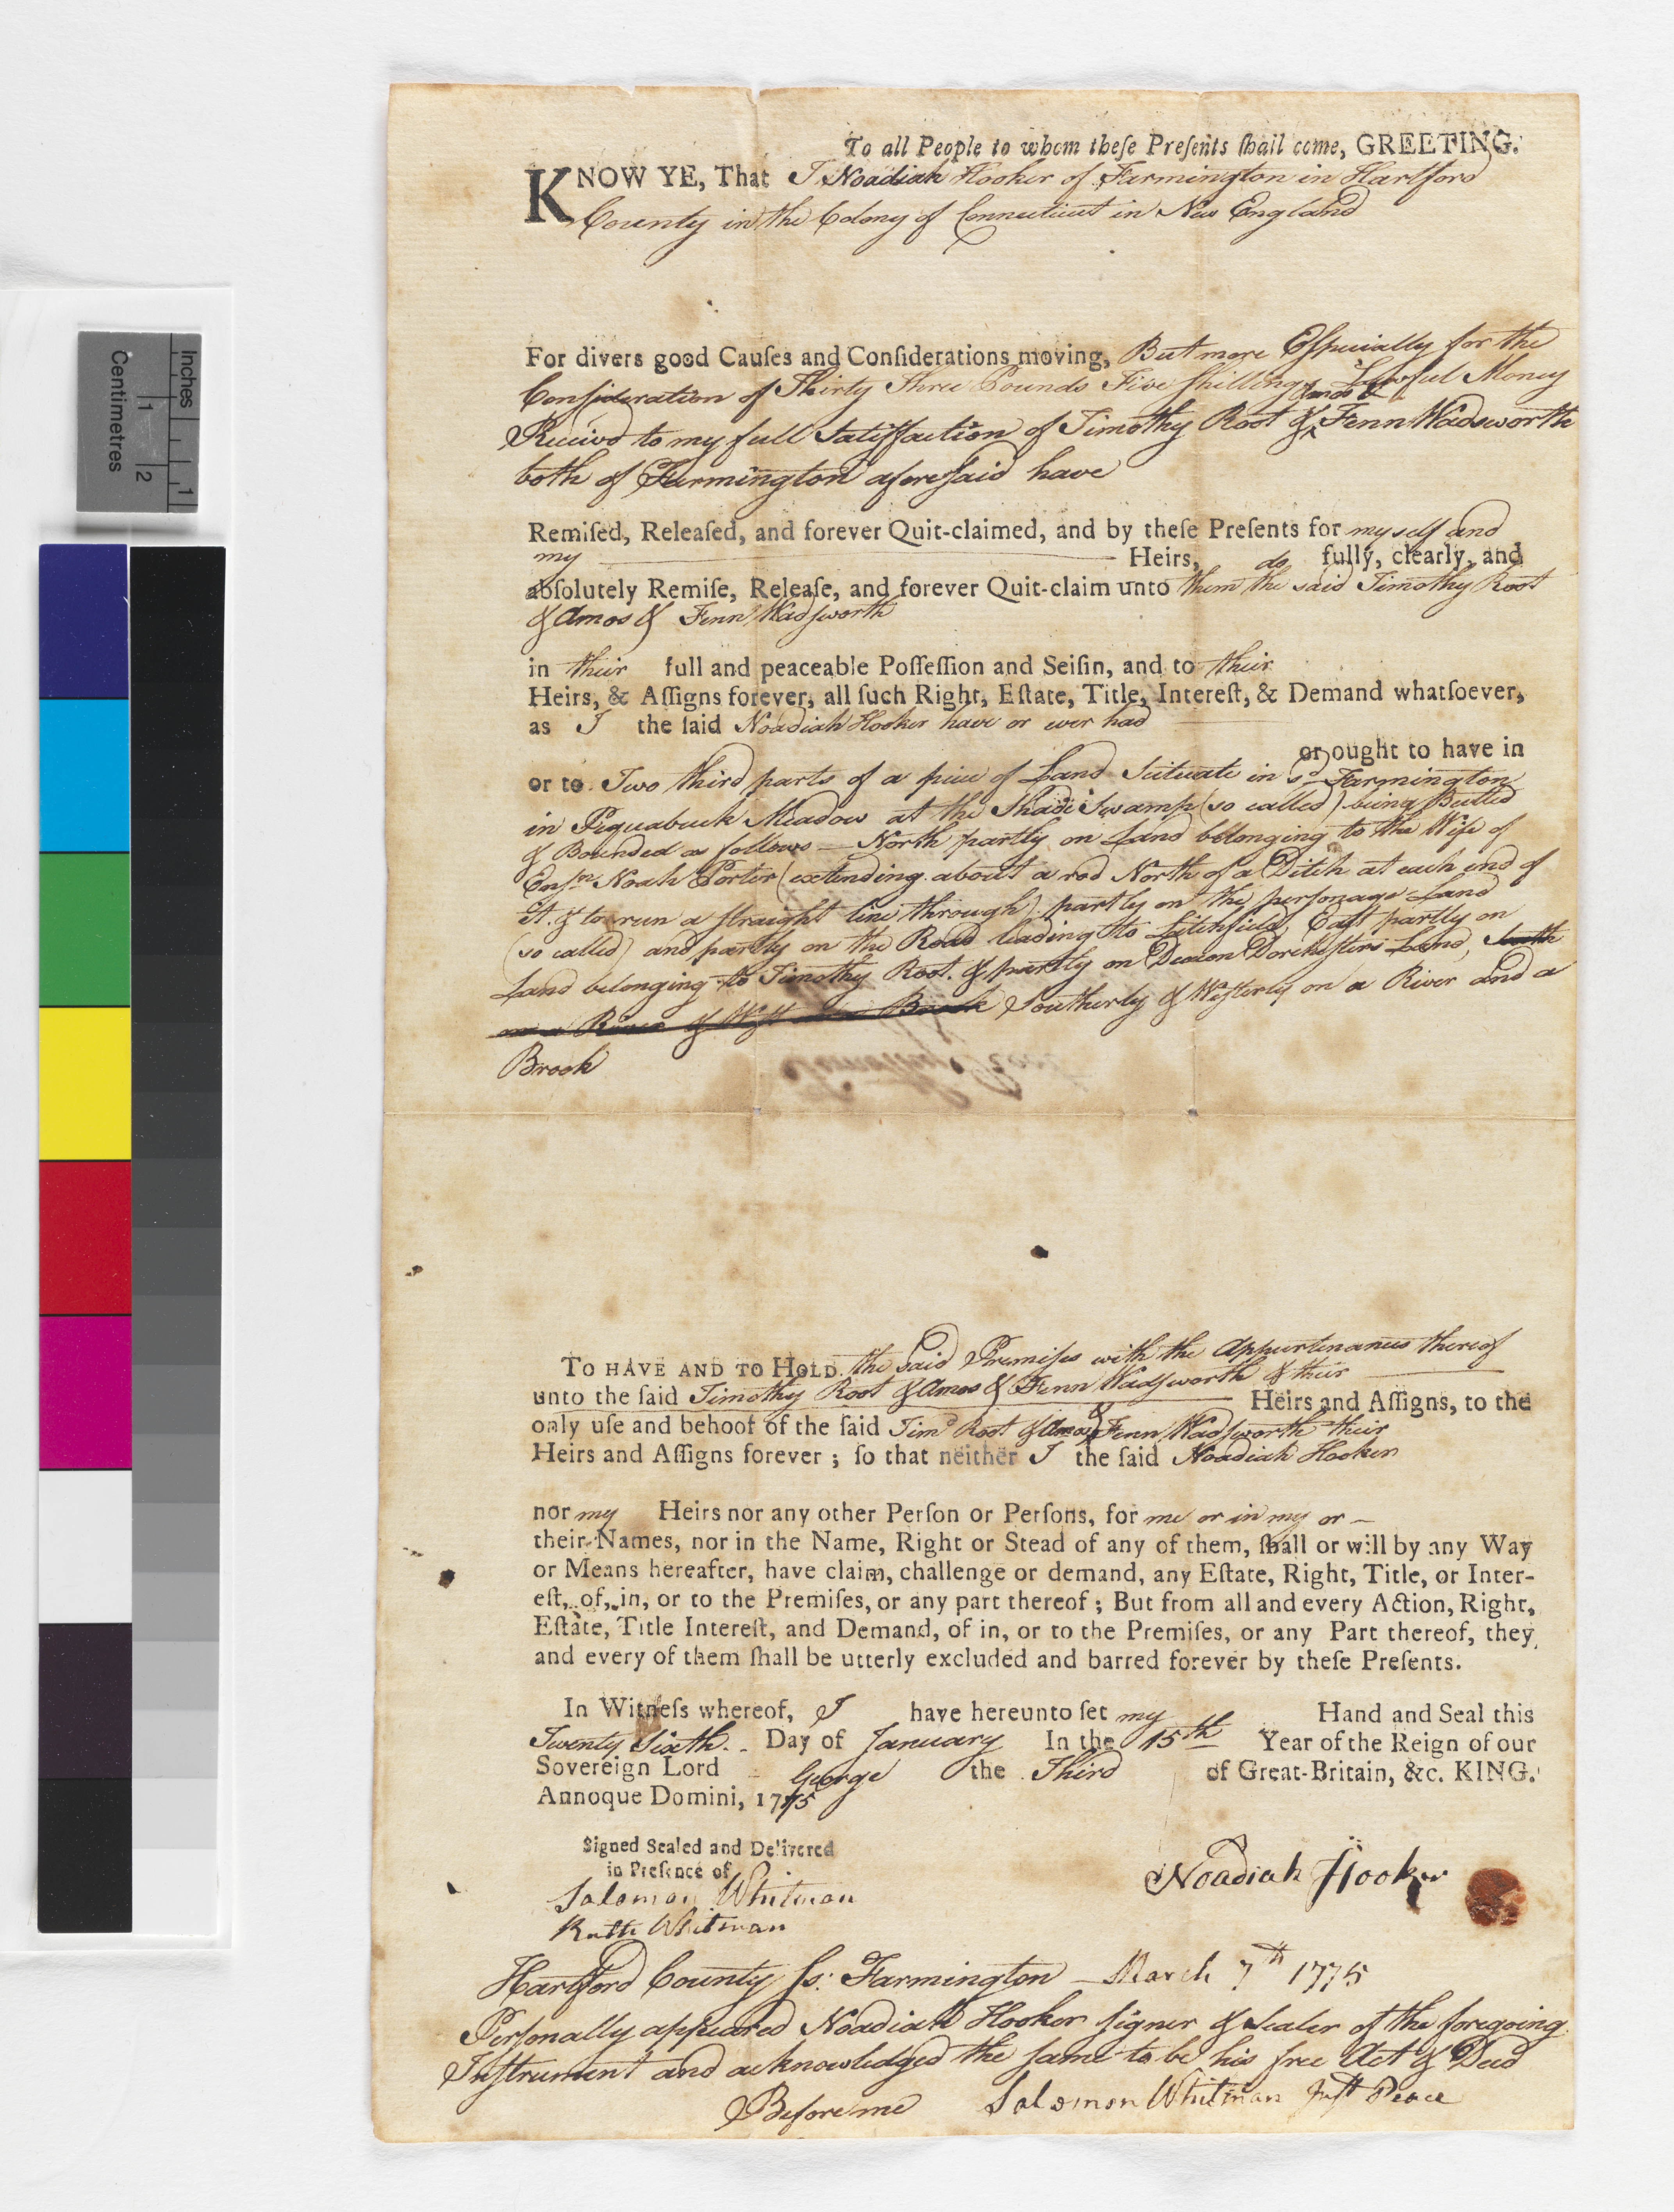 To all People to whom theſe Preſents ſhall come, GREETING.
KNOW YE, That I Noadiah Hooker of Farmington in Hartford
County in the Colony of Connecticut in New England
For divers good Cauſes and Conſiderations moving, But more Eſpecially for the
Conſideration of Thirty Three Pounds Five ſhillings Lawful Money
Amos &
Receivd to my full Satiſfaction of Timothy Root & ‸ Fenn Wadsworth
both of Farmington aforeſaid have
Remiſed, Releaſed, and forever Quit-claimed, and by theſe Preſents for myself and
my Heirs, do fully, clearly, and
abſolutely Remiſe, Releaſe, and forever Quit-claim unto them the said Timothy Root
& Amos & Fenn Wadſworth
in their full and peaceable Poſſeſſion and Seiſin, and to their
Heirs, & Aſſigns forever, all ſuch Right, Eſtate, Title, Intereſt, & Demand whatſoever,
as I the ſaid Noadiah Hooker have or ever had
or ought to have in
or to Two third parts of a piece of Land Scituate in sd Farmington
in Pequabuck Meadow at the Shade Swamp (so called) being Butted
& Bounded as follows — North partly on Land belonging to the Wife of
Ensn Noah Porter (extending about a rod North of a Ditch at each end of
It. & to run a ſtraight line through) partly on the perſonage Land
(so called) and partly on the Road leading to Litchfield, Eaſt partly on
Land belonging to Timothy Root. & partly on Deacon Dorcheſters Land, South
on a River & Weſt Brook Southerly & Weſterly on a River and a
Brook
Timothy Root
TO HAVE AND TO HOLD the Said Premiſes with the Appurtenances thereof
unto the ſaid Timothy Root & Amos & Fenn Wadſworth & their
Heirs and Aſſigns, to the
only uſe and behoof of the ſaid Timo Root & Amos & Fenn Wadſworth their
Heirs and Aſſigns forever ; ſo that neither I the ſaid Noadiah Hooker
nor my Heirs nor any other Perſon or Perſons, for me or in my or –
their Names, nor in the Name, Right or Stead of any of them, ſhall or will by any Way
or Means hereafter, have claim, challenge or demand, any Eſtate, Right, Title, or Inter-
eſt, of, in, or to the Premiſes, or any part thereof ; But from all and every Action, Right,
Eſtate, Title Intereſt, and Demand, of in, or to the Premiſes, or any Part thereof, they
and every of them ſhall be utterly excluded and barred forever by theſe Preſents.
In Witneſs whereof, I have hereunto ſet my Hand and Seal this
Twenty Sixth Day of January In the 15th Year of the Reign of our
Sovereign Lord George the Third of Great-Britain, &c. KING.
Annoque Domini, 1775
Signed Sealed and Delivered
in Preſence of
Solomon Whitman
Ruth Whitman
Noadiah Hooker
Hartford County ſs: Farmington — March 7th 1775
Perſonally appeared Noadiah Hooker ſigner & Sealer of the foregoing
Inſtrument and acknowledged the ſame to be his free Act & Deed
Before me Solomon Whitman Juſt Peace
Inches
1
Centimetres
1
2